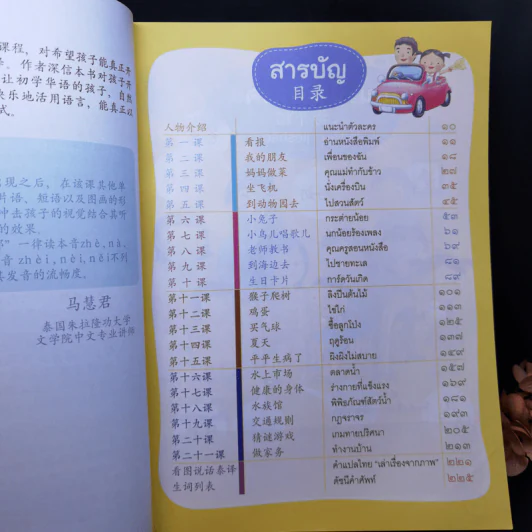 课程，对希望孩子能真正开
作者深信本书对孩子开
让初学华语的孩子，自然
快乐地活用语言，能真正以
式。
出现之后，在该课其他单
片语、短语以及图画的形
冲击孩子的视觉结合其听
的效果。
一律读本音zhè,nà,
音zhèi,nèi,něi不列
其发音的流畅度。
马慧君
泰国朱拉隆功大学
文学院中文专业讲师
สารบัญ
目录
人物介紹 แนะนำตัวละคร ๑๐
第一课 看报 อ่านหนังสือพิมพ์ ๑๑
第二课 我的朋友 เพื่อนของฉัน ๑๘
第三课 妈妈做菜 คุณแม่ทำกับข้าว ๒๗
第四课 坐飞机 นั่งเครื่องบิน ๓๕
第五课 到动物园去 ไปสวนสัตว์ ๔๕
第六课 小兔子 กระต่ายน้อย ๕๓
第七课 小鸟儿唱歌儿 นกน้อยร้องเพลง ๖๑
第八课 老师教书 คุณครูสอนหนังสือ ๖๙
第九课 到海边去 ไปชายทะเล ๘๑
第十课 生日卡片 การ์ดวันเกิด ๘๙
第十一课 猴子爬树 ลิงปีนต้นไม้ ๑๐๑
第十二课 鸡蛋 ไข่ไก่ ๑๑๓
第十三课 买气球 ซื้อลูกโป่ง ๑๒๕
第十四课 夏天 ฤดูร้อน ๑๓๗
第十五课 平平生病了 ผิงผิงไม่สบาย ๑๔๗
第十六课 水上市场 ตลาดน้ำ ๑๕๗
第十七课 健康的身体 ร่างกายที่แข็งแรง ๑๖๙
第十八课 水族馆 พิพิธภัณฑ์สัตว์น้ำ ๑๘๑
第十九课 交通规则 กฎจราจร ๑๙๓
第二十课 猜谜游戏 เกมทายปริศนา ๒๐๕
第二十一课 做家务 ทำงานบ้าน ๒๑๓
看图说话泰译 คำแปลไทย "เล่าเรื่องจากภาพ" ๒๒๑
生词列表 ดัชนีคำศัพท์ ๒๒๕